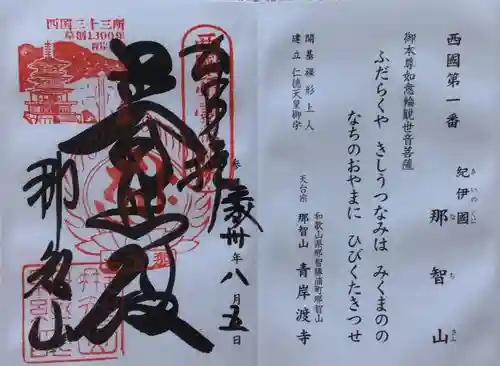 西國第一番
紀伊國 那智山
きいのくに なちさん
御本尊如意輪観世音菩薩
ふだらくや きしうつなみは みくまのの
なちのおやまに ひびくたきつせ
開基 裸形上人
建立 仁徳天皇御宇
和歌山県那智勝浦町那智山
天台宗 那智山 青岸渡寺
西国三十三所
草創1300年
奉拝
参 卅年八月五日
普照殿
那智山